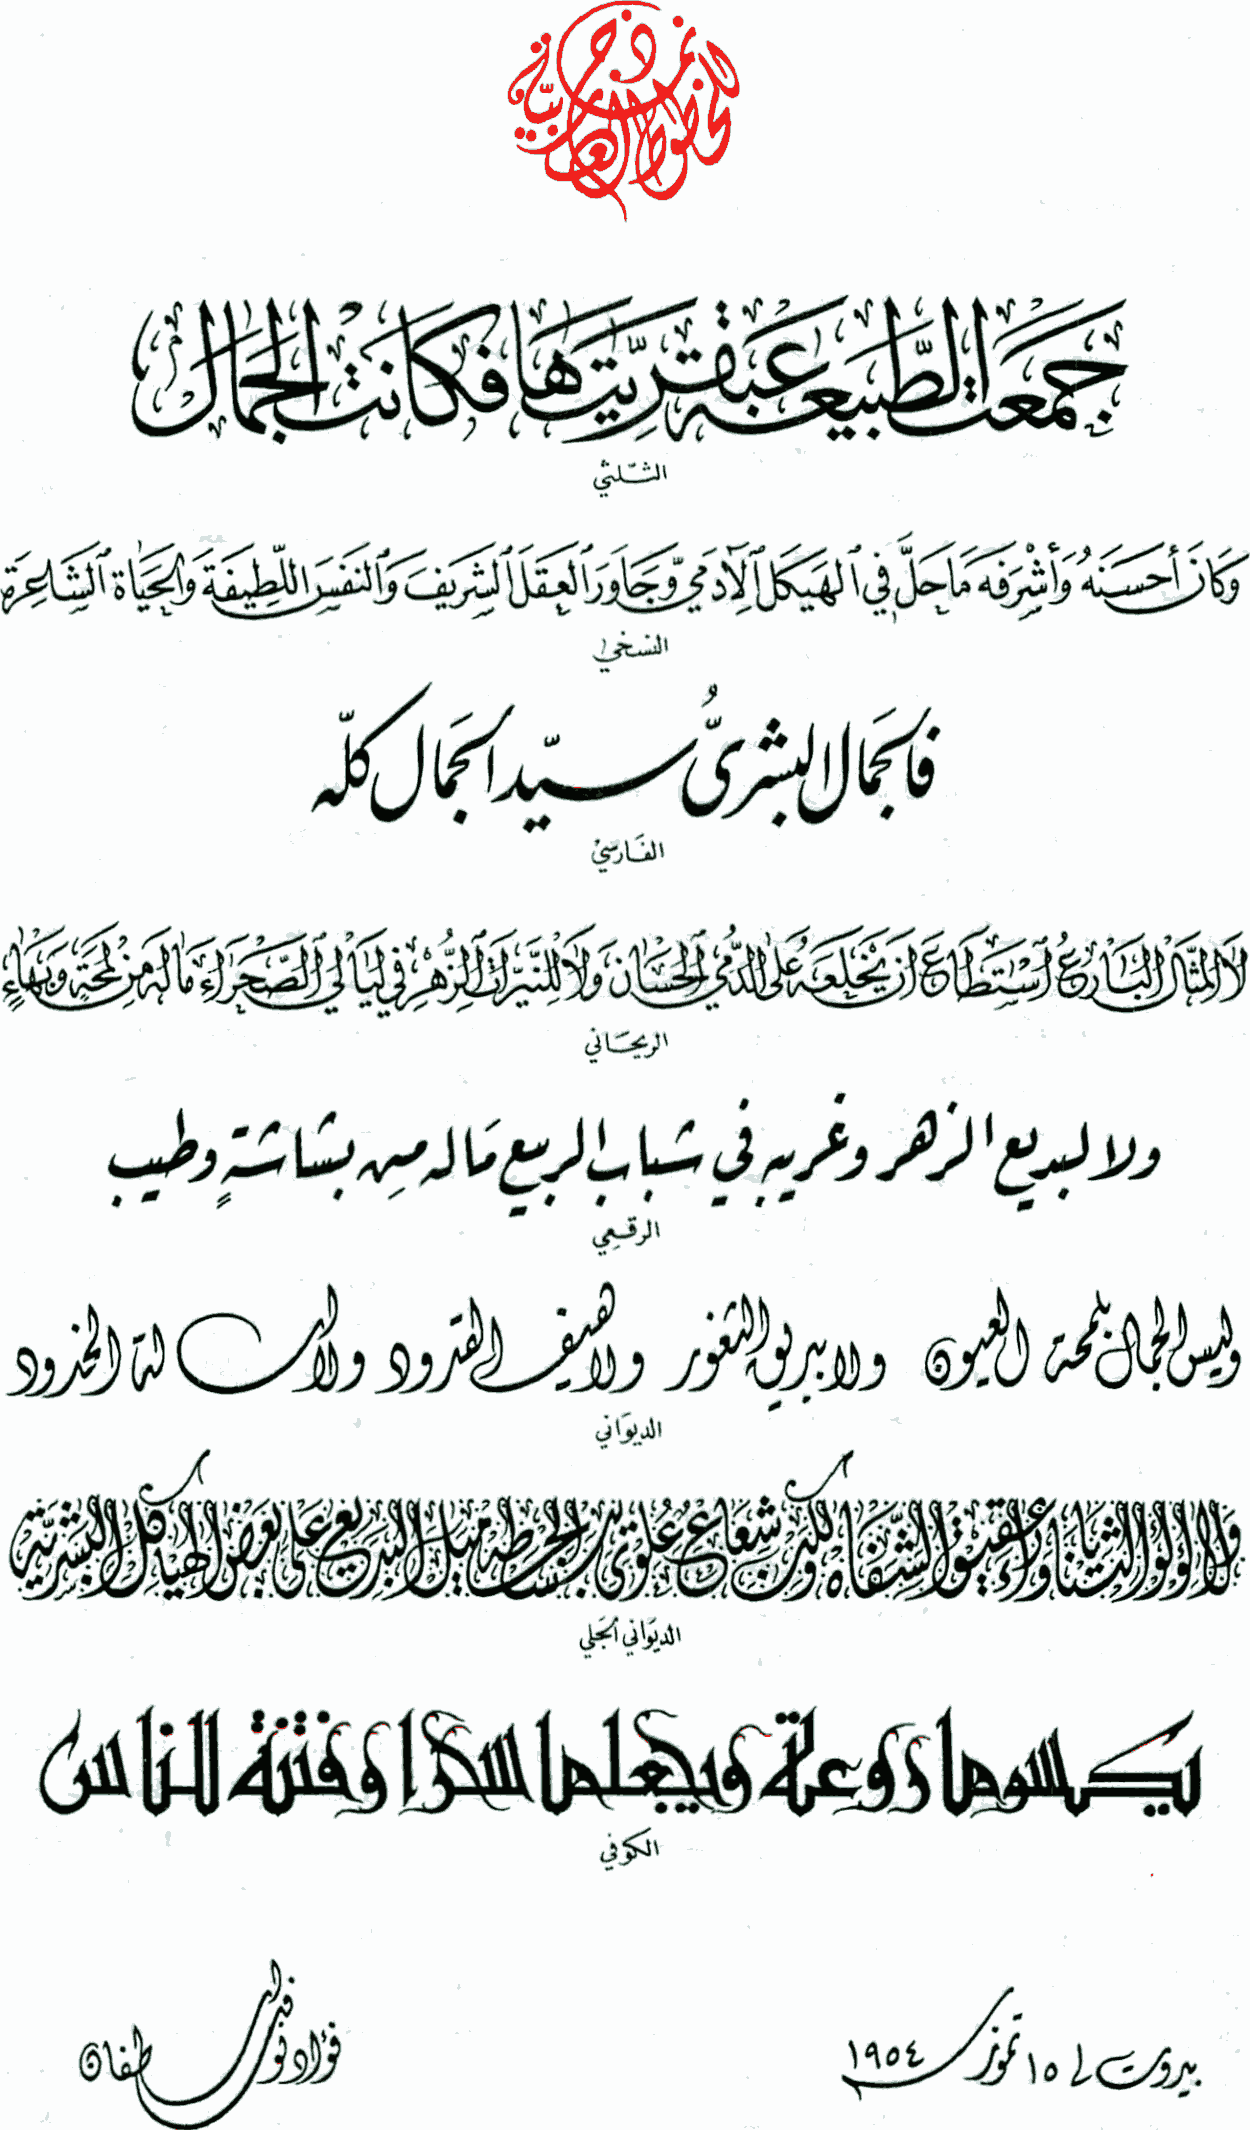 نموذج الخطوط العربيّة
جمعت الطّبيعة عبقريّتها فكانت الجمال
الثّلثي
وَكَانَ أحسَنَهُ وَأشْرَفَه مَا حَلَّ في الهَيكَل الآدَمي وَّجَاوَرَ العَقلَ الشَريفَ وَالنفَسَ اللطِيفَةَ وَالحَيَاة الشَاعِرَة
النسخي
فالجَمال البشريُّ سيّد الجَمال كلّه
الفَارسيْ
لَا المثَّالُ البَارعُ استَطَاعَ أن يَخْلَعَهُ عَلى الدُّمي الحِسَان وَلَا لِلنَّيِّرَات الزُّهْرِ في ليَالي الصَّحْرَاءِ مَا لَه مِنْ لمحَةٍ وَبَهَاءٍ
الريحَاني
ولا لبديع الزهر وغريبه في شباب الربيع مَا له مِن بشاشةٍ وطيب
الرقعِي
وليس الجمال بلمحة العيون ولا ببريق الثغور ولا هيف القدود ولا اسالة الخدود
الديوَاني
وَلا لؤلؤ الثنَايَا وَرَاء عَقيق الشِّفَاه وَلكن شعَاعٌ عُلويٌّ يَبسطه الجميل البَديع عَلى بَعض الهيَاكل البَشَريّة
الديوَاني الجَلي
يكسوها روعة ويجعلها سحرا وفتنة للناس
الكوفي
بيروت في ١٥ تموز ١٩٥٤
فؤاد اسطفان